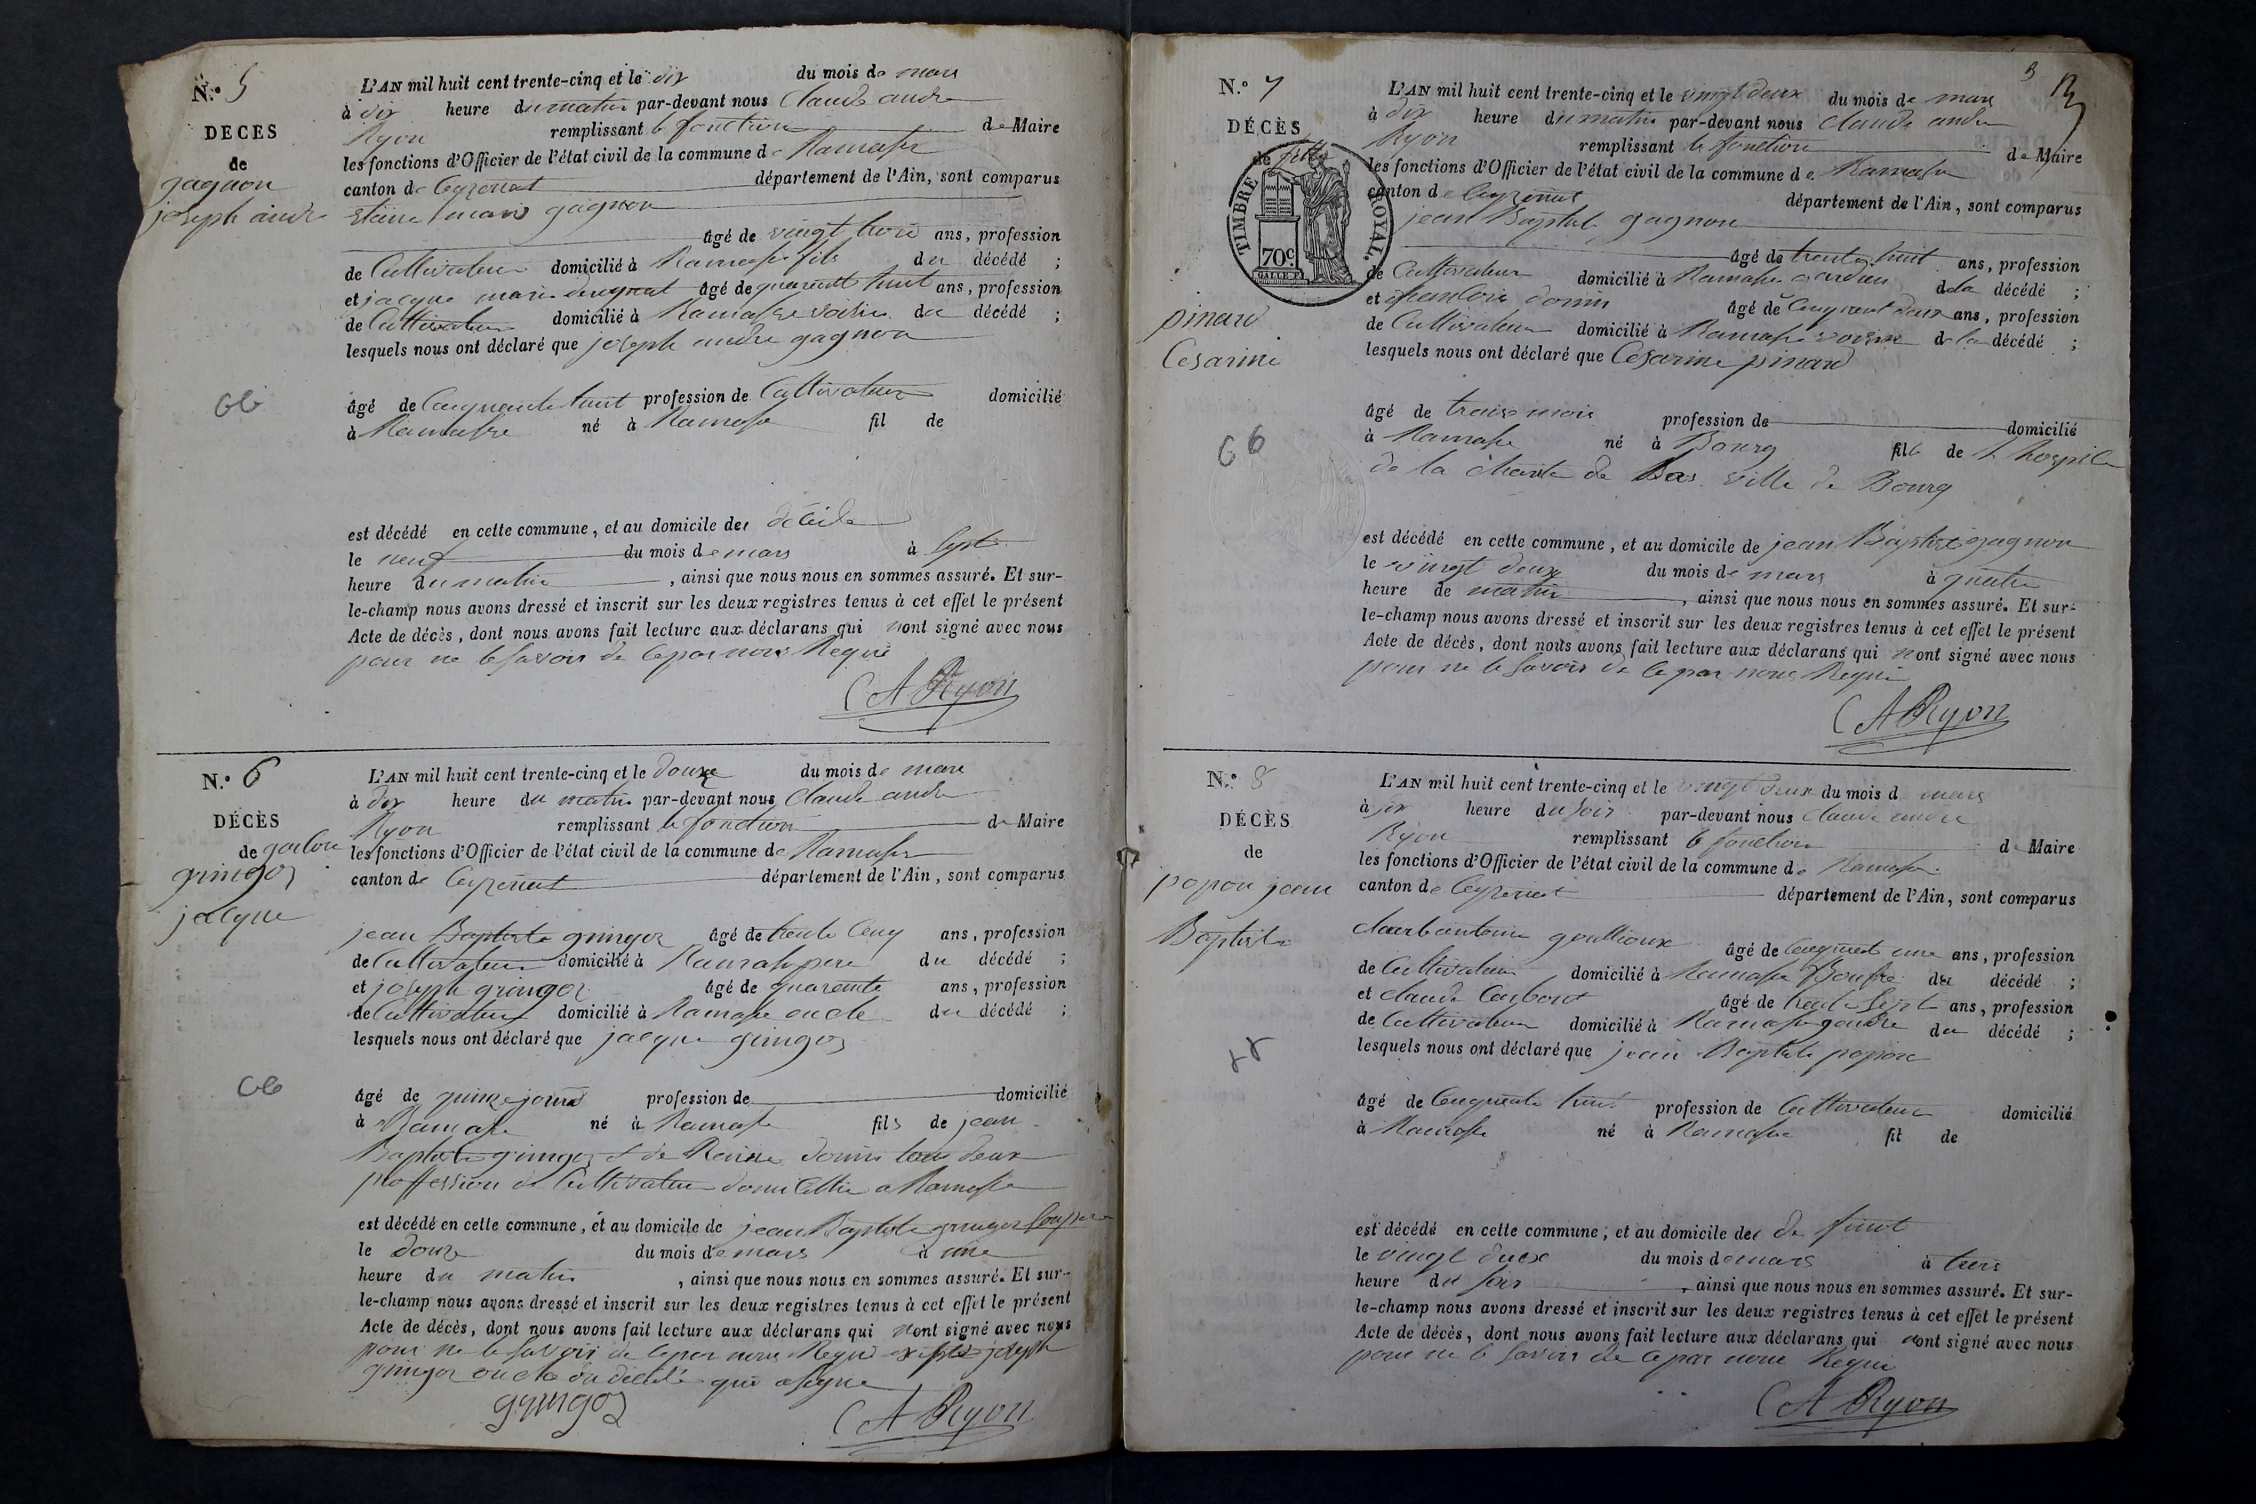 N.º 5
DECES
de
gagnon
joseph andre
66
L'AN mil huit cent trente-cinq et le dix du mois de mars
à dix heure du matin par-devant nous Claude andre
Ryon remplissant le fonction de Maire
les fonctions d'Officier de l'état civil de la commune de Ramasse
canton de Ceyzeriat département de l'Ain, sont comparus
marie gagnon
âgé de vingt trois ans, profession
de Cultivateur domicilié à Ramasse fils du décédé ;
et jacque marie âgé de quarante huit ans, profession
de Cultivateur domicilié à Ramasse voisin du décédé ;
lesquels nous ont déclaré que joseph andre gagnon
âgé de Cinquante huit profession de Cultivateur domicilié
à Ramasse né à Ramasse fil de
est décédé en cette commune, et au domicile de
le neuf du mois de mars à Sept
heure du matin , ainsi que nous nous en sommes assuré. Et sur-
le-champ nous avons dressé et inscrit sur les deux registres tenus à cet effet le présent
Acte de décès, dont nous avons fait lecture aux déclarans qui nont signé avec nous
pour ne le savoir de ce par nous Requi
CA Ryon
N.º 6
DÉCÈS
de garson
gringoz
jacque
66
L'AN mil huit cent trente-cinq et le douze du mois de mars
à dix heure du matin par-devant nous Claude andre
Ryon remplissant le fonction de Maire
les fonctions d'Officier de l'état civil de la commune de Ramasse
canton de Ceyzeriat département de l'Ain, sont comparus
jean Baptiste gringoz âgé de trente Cinq ans, profession
de Cultivateur domicilié à Ramasse pere du décédé ;
et joseph gringoz âgé de quarante ans, profession
de Cultivateur domicilié à Ramasse oncle du décédé ;
lesquels nous ont déclaré que jacque gringoz
âgé de quinze jours profession de domicilié
à Ramasse né à Ramasse fils de jean
Baptiste gringoz et de Reine tous deux
proffession de Cultivateur a Ramasse
est décédé en cette commune, et au domicile de jean Baptiste gringoz son pere
le douze du mois de mars à une
heure du matin , ainsi que nous nous en sommes assuré. Et sur-
le-champ nous avons dressé et inscrit sur les deux registres tenus à cet effet le présent
Acte de décès, dont nous avons fait lecture aux déclarans qui nont signé avec nous
pour ne le savoir de ce par nous Requi joseph
gringoz oncle du décédé qui a signe
gringoz
CA Ryon
3
N.º 7
DÉCÈS
de fille
TIMBRE ROYAL.
70c.
pinard
Cesarine
66
L'AN mil huit cent trente-cinq et le vingt deux du mois de mars
à dix heure du matin par-devant nous Claude andre
Ryon remplissant le fonction de Maire
les fonctions d'Officier de l'état civil de la commune de Ramasse
canton de Ceyzeriat département de l'Ain, sont comparus
jean Baptiste gagnon
âgé de trente huit ans, profession
de Cultivateur domicilié à Ramasse de la décédé ;
et âgé de Cinquant deux ans, profession
de Cultivateur domicilié à Ramasse voisin de la décédé ;
lesquels nous ont déclaré que Cesarine pinard
âgé de trois mois profession de domicilié
à Ramasse né à Bourg fille de
de la Charite de ville de Bourg
est décédé en cette commune, et au domicile de jean Baptiste gagnon
le vingt deux du mois de mars à quatre
heure de matin , ainsi que nous nous en sommes assuré. Et sur-
le-champ nous avons dressé et inscrit sur les deux registres tenus à cet effet le présent
Acte de décès, dont nous avons fait lecture aux déclarans qui nont signé avec nous
pour ne le savoir de ce par nous Requi
CA Ryon
N.º 8
DÉCÈS
de
popon jean
Baptiste
L'AN mil huit cent trente-cinq et le vingt deux du mois d mars
à heure du soir par-devant nous Claude andre
Ryon remplissant le fonction d Maire
les fonctions d'Officier de l'état civil de la commune de Ramasse
canton de Ceyzeriat département de l'Ain, sont comparus
âgé de Cinquant une ans, profession
de Cultivateur domicilié à Ramasse du décédé ;
et Claude âgé de trente Sept ans, profession
de Cultivateur domicilié à Ramasse gendre du décédé ;
lesquels nous ont déclaré que jean Baptiste popon
âgé de Cinquante huit profession de Cultivateur domicilié
à Ramasse né à Ramasse fil de
est décédé en cette commune, et au domicile de
le vingt deux du mois de mars à trois
heure du soir , ainsi que nous nous en sommes assuré. Et sur-
le-champ nous avons dressé et inscrit sur les deux registres tenus à cet effet le présent
Acte de décès, dont nous avons fait lecture aux déclarans qui nont signé avec nous
pour ne le savoir de ce par nous Requi
CA Ryon